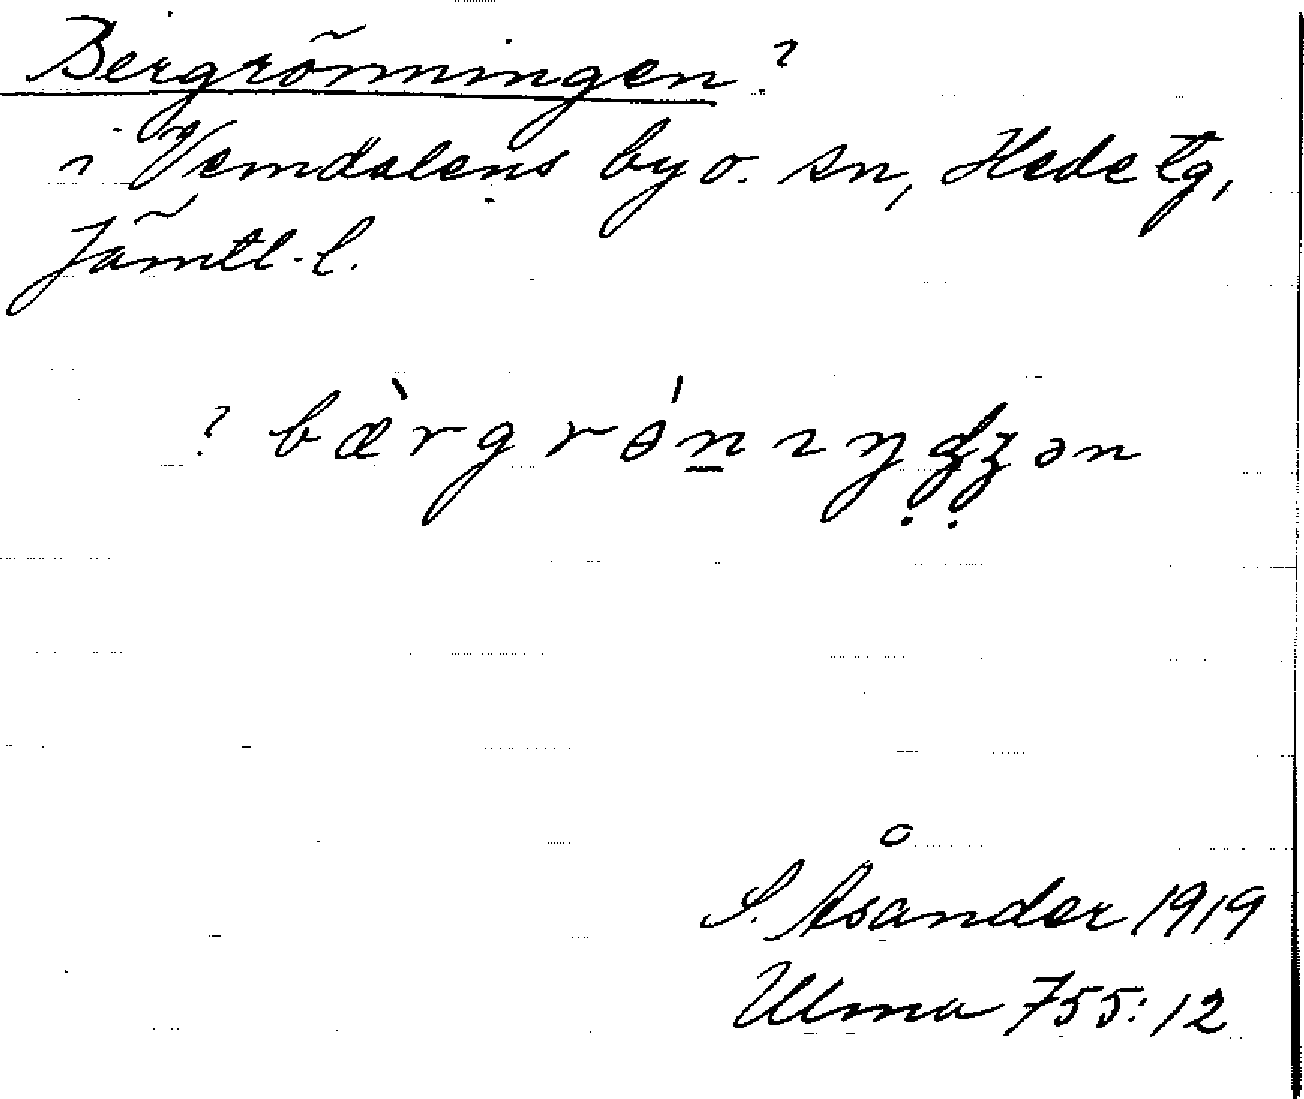 Bergrönningen?
i Vemdalens by o. sn, Hede tg,
Jämtl. l.
? bæ̀rgrɵ́n̲ıŋḍʒ̣ən
S. Åsander 1919
Ulma 755:12